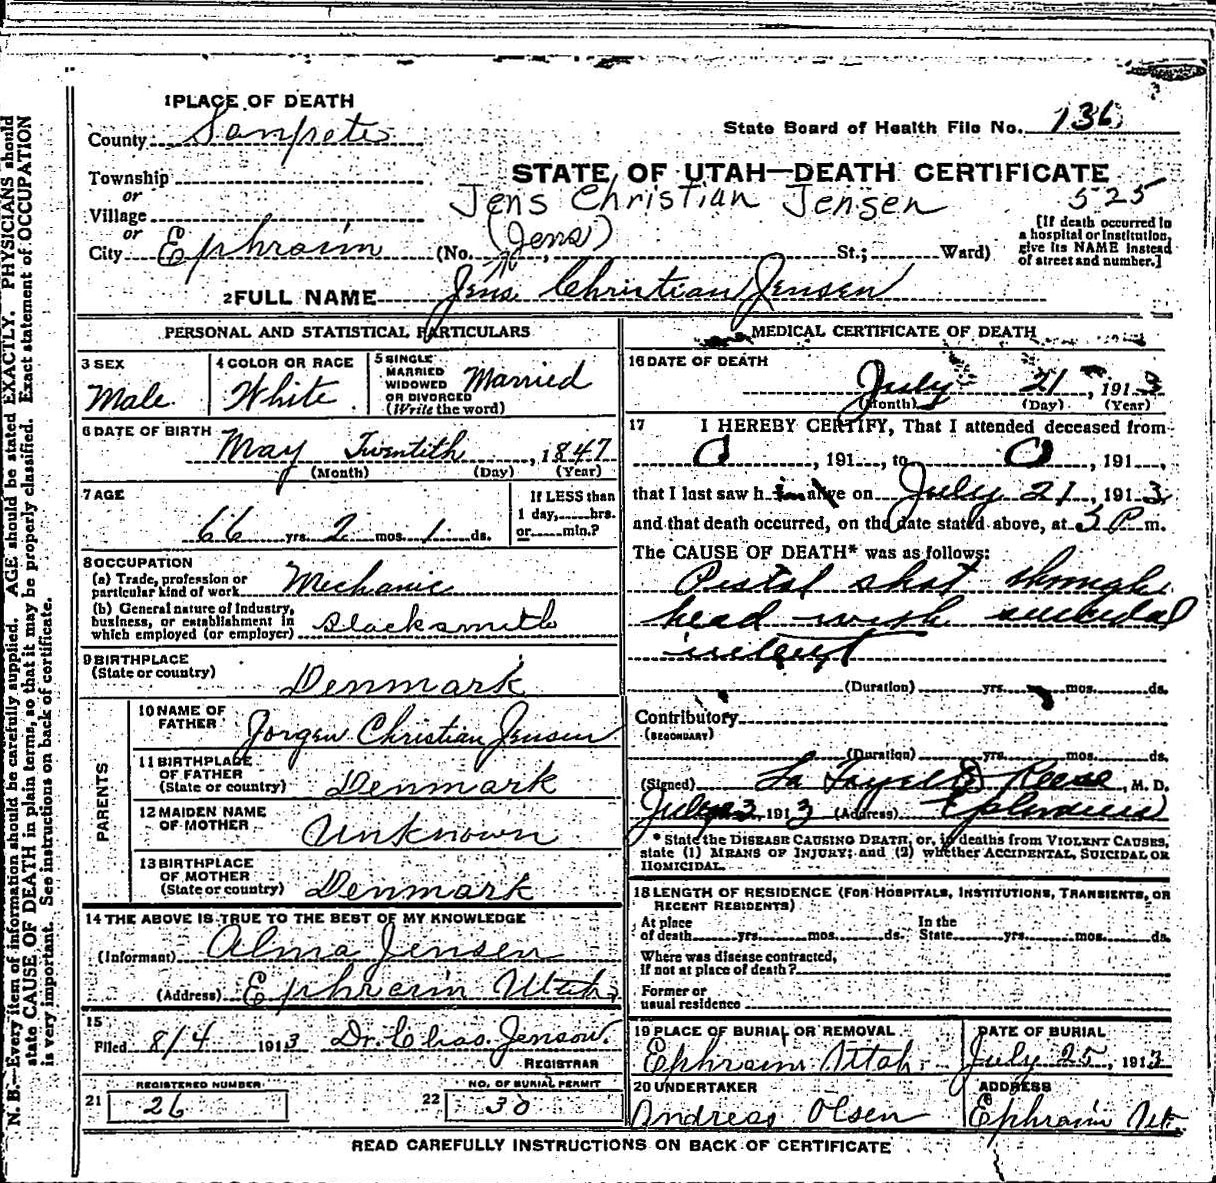 1 PLACE OF DEATH
County Sanpete
State Board of Health File No. 136
STATE OF UTAH—DEATH CERTIFICATE
Township
or
Village
or
City Ephraim (No. , St.; Ward)
Jens Christian Jensen
525
(Jens)
[If death occurred in
a hospital or institution,
give its NAME instead
of street and number.]
2 FULL NAME Jens Christian Jensen
PERSONAL AND STATISTICAL PARTICULARS
3 SEX
Male
4 COLOR OR RACE
White
5 SINGLE
MARRIED
WIDOWED
OR DIVORCED
(Write the word)
Married
6 DATE OF BIRTH
May Twentith, 1847
(Month) (Day) (Year)
7 AGE
66 yrs. 2 mos. 1 ds.
If LESS than
1 day, hrs.
or min.?
8 OCCUPATION
(a) Trade, profession or
particular kind of work Mechanic
(b) General nature of Industry,
business, or establishment in
which employed (or employer) Blacksmith
9 BIRTHPLACE
(State or country) Denmark
PARENTS
10 NAME OF
FATHER Jorgen Christian Jensen
11 BIRTHPLACE
OF FATHER
(State or country) Denmark
12 MAIDEN NAME
OF MOTHER Unknown
13 BIRTHPLACE
OF MOTHER
(State or country) Denmark
14 THE ABOVE IS TRUE TO THE BEST OF MY KNOWLEDGE
(Informant) Alma Jensen
(Address) Ephraim Utah
15
Filed 8/4 1913 Dr. Chas. Jenson.
REGISTRAR
21 REGISTERED NUMBER
26
22 NO. OF BURIAL PERMIT
30
MEDICAL CERTIFICATE OF DEATH
16 DATE OF DEATH
July 21, 1913
(Month) (Day) (Year)
17 I HEREBY CERTIFY, That I attended deceased from
0, 191 , to 0, 191 ,
that I last saw h im alive on July 21, 1913
and that death occurred, on the date stated above, at 5 P. m.
The CAUSE OF DEATH* was as follows:
Pistol shot through
head with suicidal
intent
(Duration) yrs. mos. ds.
Contributory
(SECONDARY)
(Duration) yrs. mos. ds.
(Signed) La Fayette Reese, M. D.
July 23 1913 (Address) Ephraim
* State the DISEASE CAUSING DEATH, or, in deaths from VIOLENT CAUSES,
state (1) MEANS OF INJURY; and (2) whether ACCIDENTAL, SUICIDAL OR
HOMICIDAL.
18 LENGTH OF RESIDENCE (FOR HOSPITALS, INSTITUTIONS, TRANSIENTS, OR
RECENT RESIDENTS)
At place
of death yrs. mos. ds.
In the
State yrs. mos. ds.
Where was disease contracted,
if not at place of death?
Former or
usual residence
19 PLACE OF BURIAL OR REMOVAL
Ephraim Utah
DATE OF BURIAL
July 25, 1913
20 UNDERTAKER
Andreas Olsen
ADDRESS
Ephraim Ut.
READ CAREFULLY INSTRUCTIONS ON BACK OF CERTIFICATE
N. B.—Every item of information should be carefully supplied. AGE should be stated EXACTLY. PHYSICIANS should
state CAUSE OF DEATH in plain terms, so that it may be properly classified. Exact statement of OCCUPATION
is very important. See instructions on back of certificate.